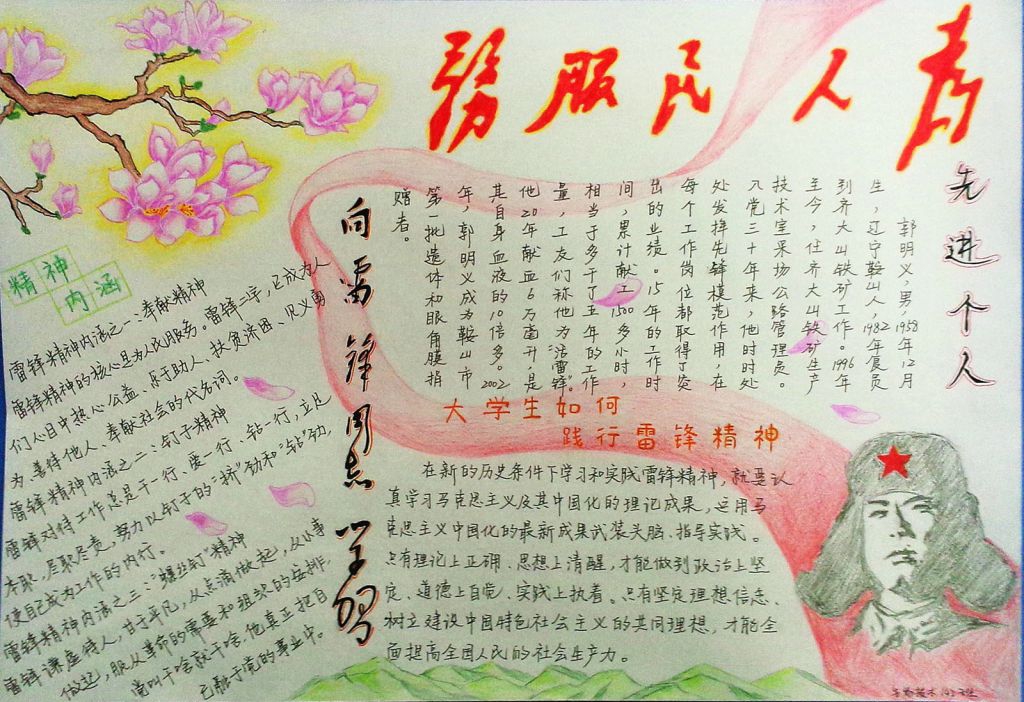 為人民服務
先进个人
郭明义，男，1958年12月
生，辽宁鞍山人，1982年复员
到齐大山铁矿工作。1996年
至今，任齐大山铁矿生产
技术室采场公路管理员。
入党三十年来，他时时处
处发挥先锋模范作用，在
每个工作岗位都取得了突
出的业绩。15年的工作时
间，累计献工1500多小时，
相当于多干了五年的工作
量，工友们称他为“活雷锋”。
他20年献血6万毫升，是
其自身血液的10倍多。2002
年，郭明义成为鞍山市
第一批遗体和眼角膜捐
赠者。
向雷锋同志学習
精神
内涵
雷锋精神内涵之一：奉献精神
雷锋精神的核心是为人民服务。雷锋二字，已成为人
们心目中热心公益、乐于助人、扶贫济困、见义勇
为、善待他人、奉献社会的代名词。
雷锋精神内涵之二：钉子精神
雷锋对待工作总是干一行、爱一行、钻一行，立足
本职，尽职尽责，努力以钉子的“挤”劲和“钻”劲，
使自己成为工作的内行。
雷锋精神内涵之三：“螺丝钉”精神
雷锋谦虚待人，甘于平凡，从点滴做起，从小事
做起，服从革命的需要和组织的安排，
党叫干啥就干啥，他真正把自
己融于党的事业中。
大学生如何
践行雷锋精神
在新的历史条件下学习和实践雷锋精神，就要认
真学习马克思主义及其中国化的理论成果，运用马
克思主义中国化的最新成果武装头脑、指导实践。
只有理论上正确、思想上清醒，才能做到政治上坚
定、道德上自觉、实践上执着。只有坚定理想信念、
树立建设中国特色社会主义的共同理想，才能全
面提高全国人民的社会生产力。